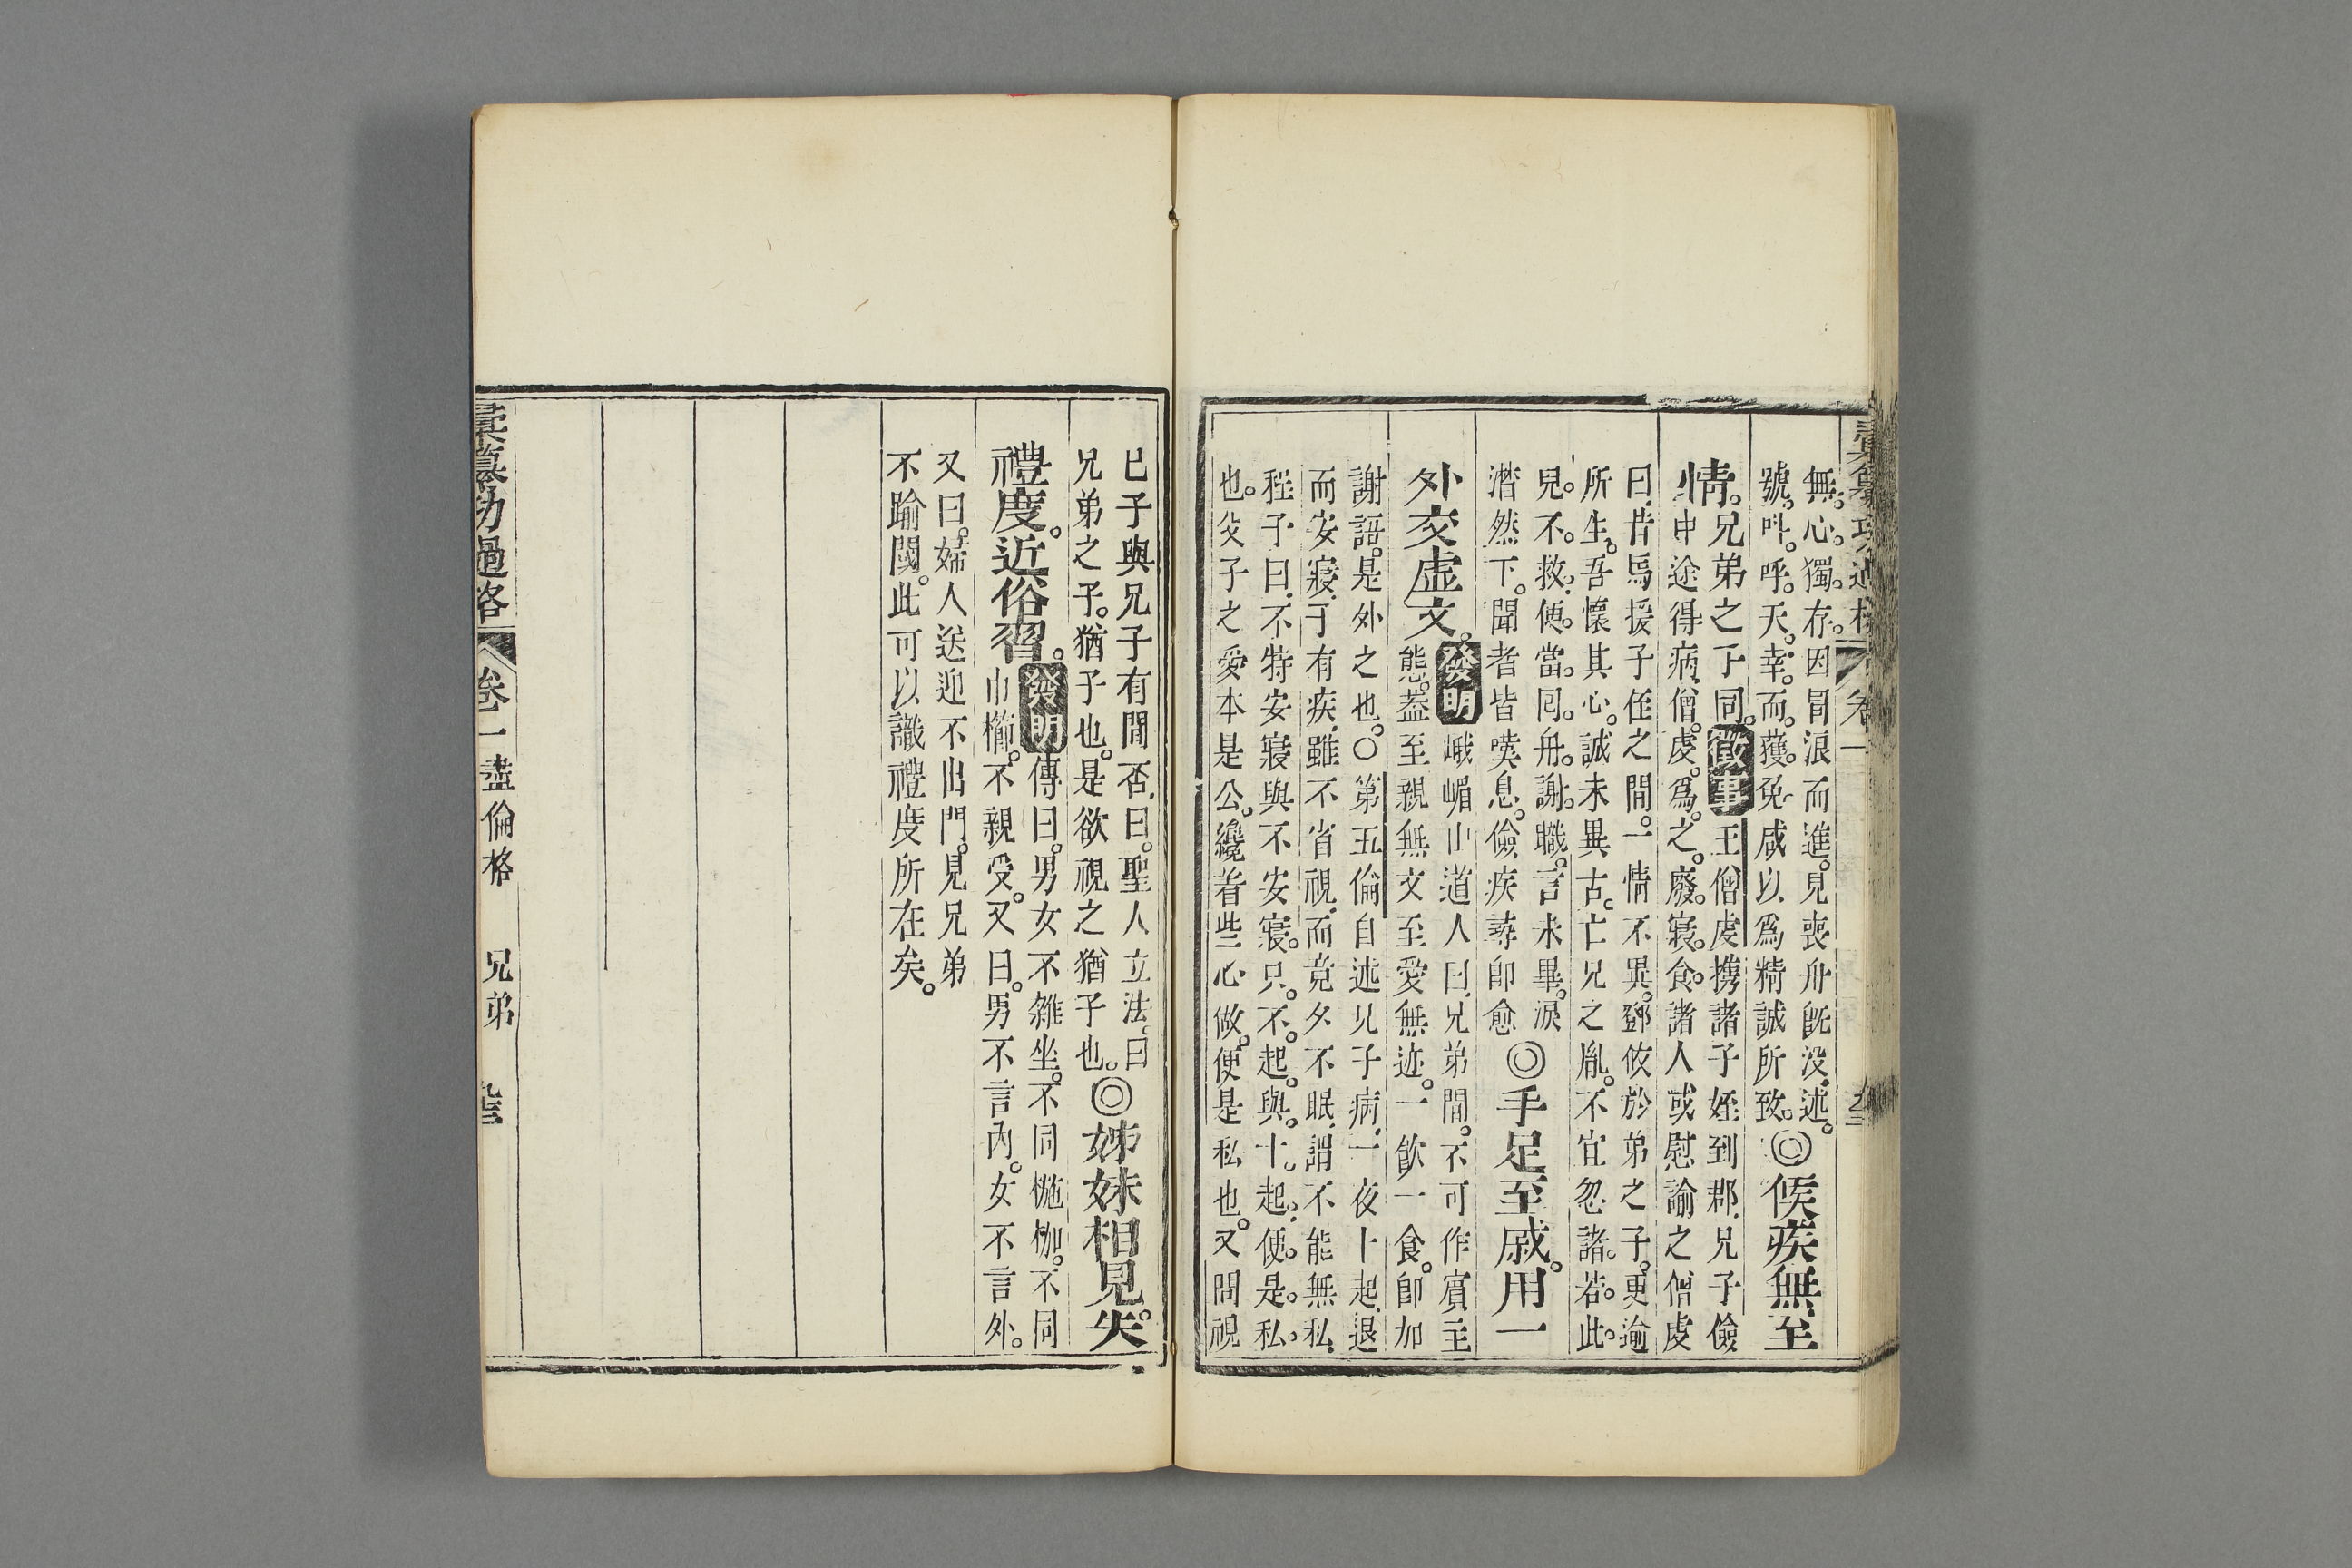 無心獨存因冒浪而進見喪舟旣没述
號呌呼天幸而獲免咸以爲精誠所致
◎候疾無至
情
兄弟之子同徵事王僧虔攜諸子姪到郡兄子儉
中途得病僧虔爲之廢寢食諸人或慰諭之僧虔
曰昔馬援子侄之間一情不異鄧攸於弟之子更逾
所生吾懷其心誠未異古亡兄之胤不宜忽諸若此
兒不救便當囘舟謝職言未畢淚
潸然下聞者皆嘆息儉疾尋卽愈
◎手足至戚用一
外交虛文
發明峨嵋山道人曰兄弟間不可作賓主
態葢至親無文至愛無迹一飲一食卽加
謝語是外之也○第五倫自述兄子病一夜十起退
而安寢子有疾雖不省視而竟夕不眠謂不能無私
程子曰不特安寢與不安寢只不起與十起便是私
也父子之愛本是公纔着些心做便是私也又問視
彙纂功過格 卷一
己子與兄子有間否曰聖人立法曰
兄弟之子猶子也是欲視之猶子也
◎姊妹相見失
禮度近俗習
發明傳曰男女不雜坐不同椸枷不同
巾櫛不親受又曰男不言內女不言外
又曰婦人送迎不出門見兄弟
不踰閾此可以識禮度所在矣
彙纂功過格 卷一 盡倫格 兄弟